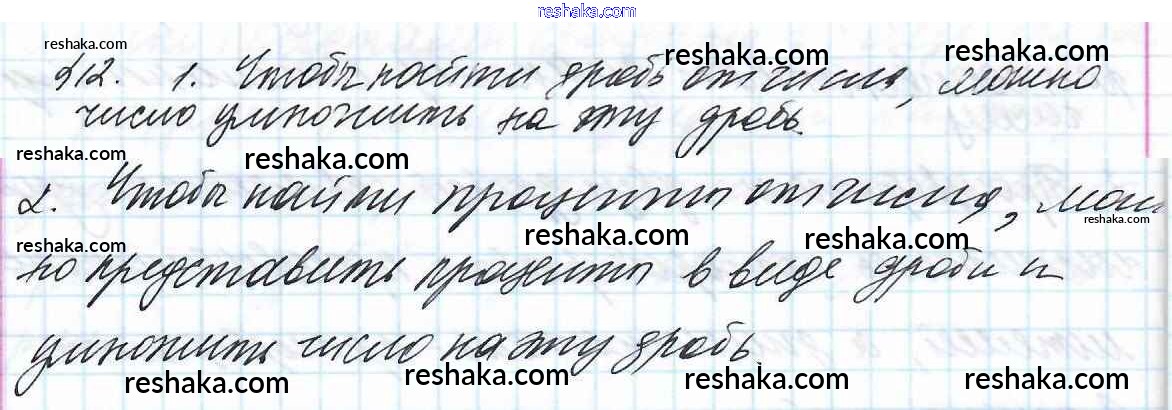 reshaka.com
reshaka.com reshaka.com reshaka.com
§12. 1. Чтобы найти дробь от числа, можно
число умножить на эту дробь.
reshaka.com reshaka.com reshaka.com
2. Чтобы найти проценты от числа, мож
reshaka.com reshaka.com reshaka.com reshaka.com
но представить проценты в виде дроби и
умножить число на эту дробь.
reshaka.com reshaka.com reshaka.com reshaka.com